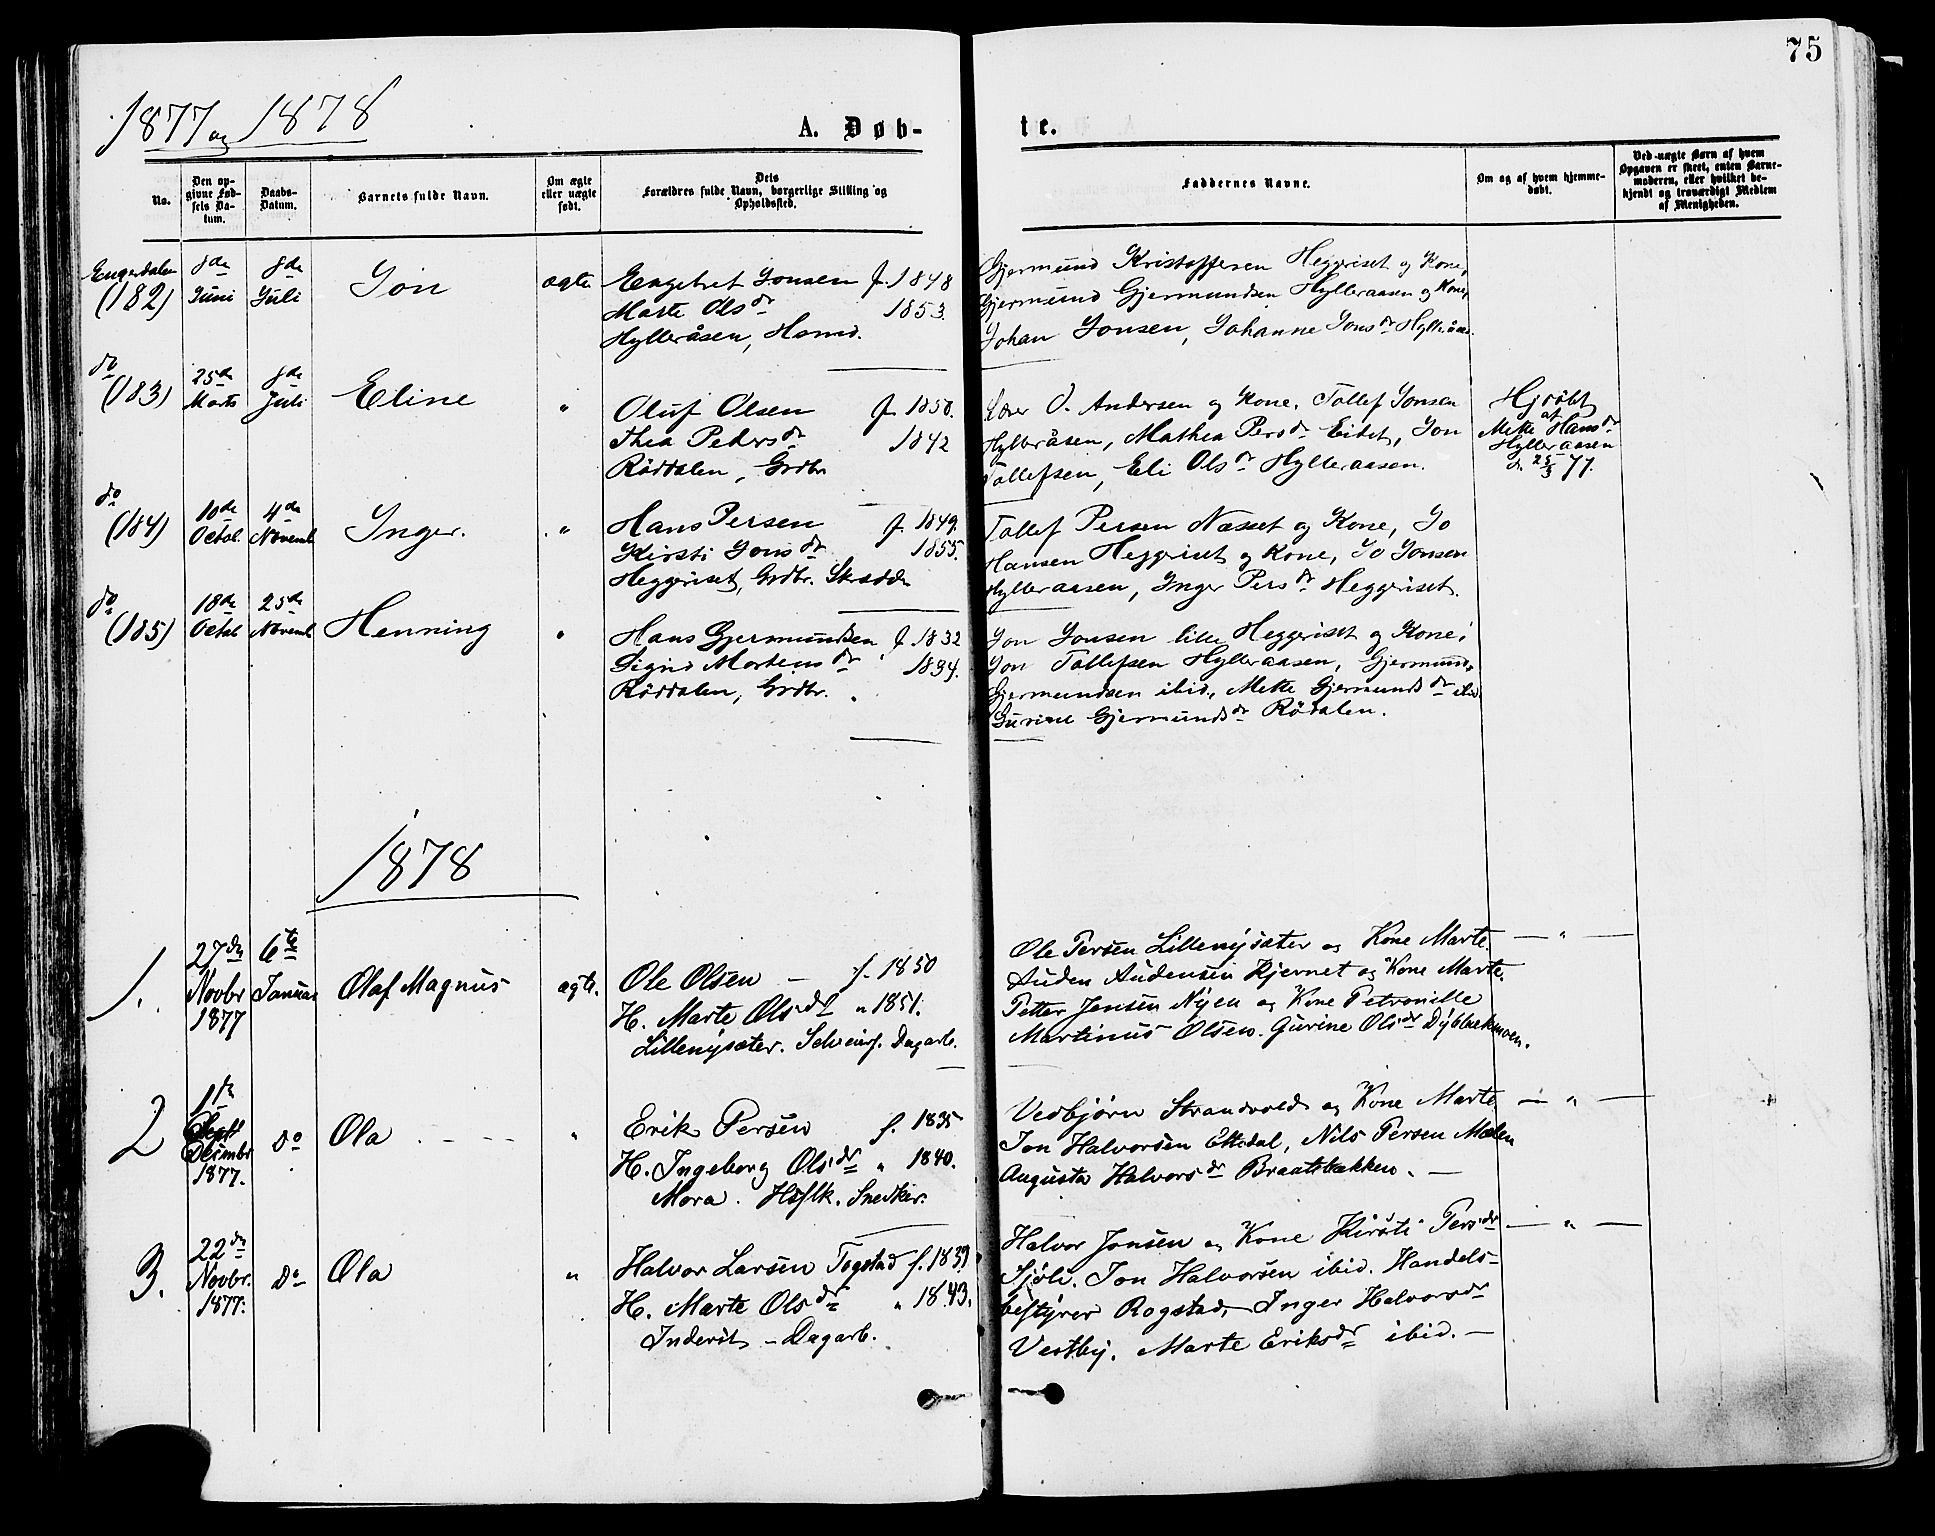 75
1877 og 1878
A. Døb-
te.
No.
Den op-
givne Fød-
sels Da-
tum.
Daabs-
Datum.
Barnets fulde Navn.
Om ægte
eller uægte
født.
Dets
Forældres fulde Navn, borgerlige Stilling og
Opholdssted.
Faddernes Navne.
Om og af hvem hjemme-
døbt.
Ved uægte Børn af hvem
Opgaven er skeet, enten Barne-
moderen, eller hvilket be-
kjendt og troværdigt Medlem
af Menigheden.
Engerdalen
(182)
8de
Juni
8de
Juli
Jon
ægte
Engebret Jonsen f. 1848
Marte Olsdr 1853.
Hylleråsen, Hamd.
Gjermund Kristoffersen Heggeriset og Kone,
Gjermund Gjermundsen Hylleraasen og Kone,
Johan Jonsen, Johanne Jonsdr Hylleråsen
do
(183)
25de
Marts
8de
Juli
Eline
"
Oluf Olsen f. 1850.
Thea Pedersdr 1842
Röddalen, Grdbr
Lærer O. Andersen og Kone, Tollef Jonsen
Hylleråsen, Mathea Persdr Eidet, Jon
Tollefsen, Eli Olsdr Hylleraasen.
Hjdöbt
af
Mette Hansdr
Hylleraasen
d. 25/3 77.
do
(184)
10de
Octob.
4de
Novemb
Inger.
"
Hans Persen f. 1849.
Kirsti Jonsdr 1855.
Heggeriset, Grdbr. Skrædder
Tollef Persen Næsset og Kone, Jo
Hansen Heggeriset og Kone, Jo Jonsen
Hylleraasen, Inger Persdr Heggeriset.
do
(185)
18de
Octob.
25de
Novemb
Henning
"
Hans Gjermundsen f. 1832
Signe Mortensdr 1834.
Röddalen, Grdbr.
Jon Jonsen lille Heggeriset og Kone,
Jon Tollefsen Hylleraasen, Gjermund
Gjermundsen ibid., Mette Gjermundsdr ibid.
Gurine Gjermundsdr Rödalen.
1878
1.
27de
Novbr
1877
6te
Januar
Olaf Magnus
ægte.
Ole Olsen – f. 1850
H. Marte Olsdr " 1851.
Lillenysæter. Selveierf. Dagarb.
Ole Persen Lillenysæter og Kone Marte.
Auden Audensen Kjernet og Kone Marte.
Petter Jensen Nyen og Kone Petronille
Martinus Olsen. Gurine Olsdr Dybbækmoen.
— " —
2
1ste
Septbr
Decimbr
1877.
Do
Ola
"
Erik Persen f. 1835
H. Ingeborg Olsdr " 1840.
Mora. Hsflk. Snedker.
Vesbjørn Strandvold og Kone Marte
Jon Halvorsen Elsdal, Nils Persen Moen
Augusta Halvorsdr Braatebakken. —
— " —
3.
22de
Novbr.
1877.
Do
Ola
"
Halvor Larsen Togstad f. 1839
H. Marte Olsdr " 1843.
Inderst – Dagarb.
Halvor Jonsen og Kone Kirsti Persdr
Sjöli. Jon Halvorsen ibid. Handels-
bestyrer Rogstad, Inger Halvorsdr
Vestby. Marte Eriksdr ibid. —
— " —